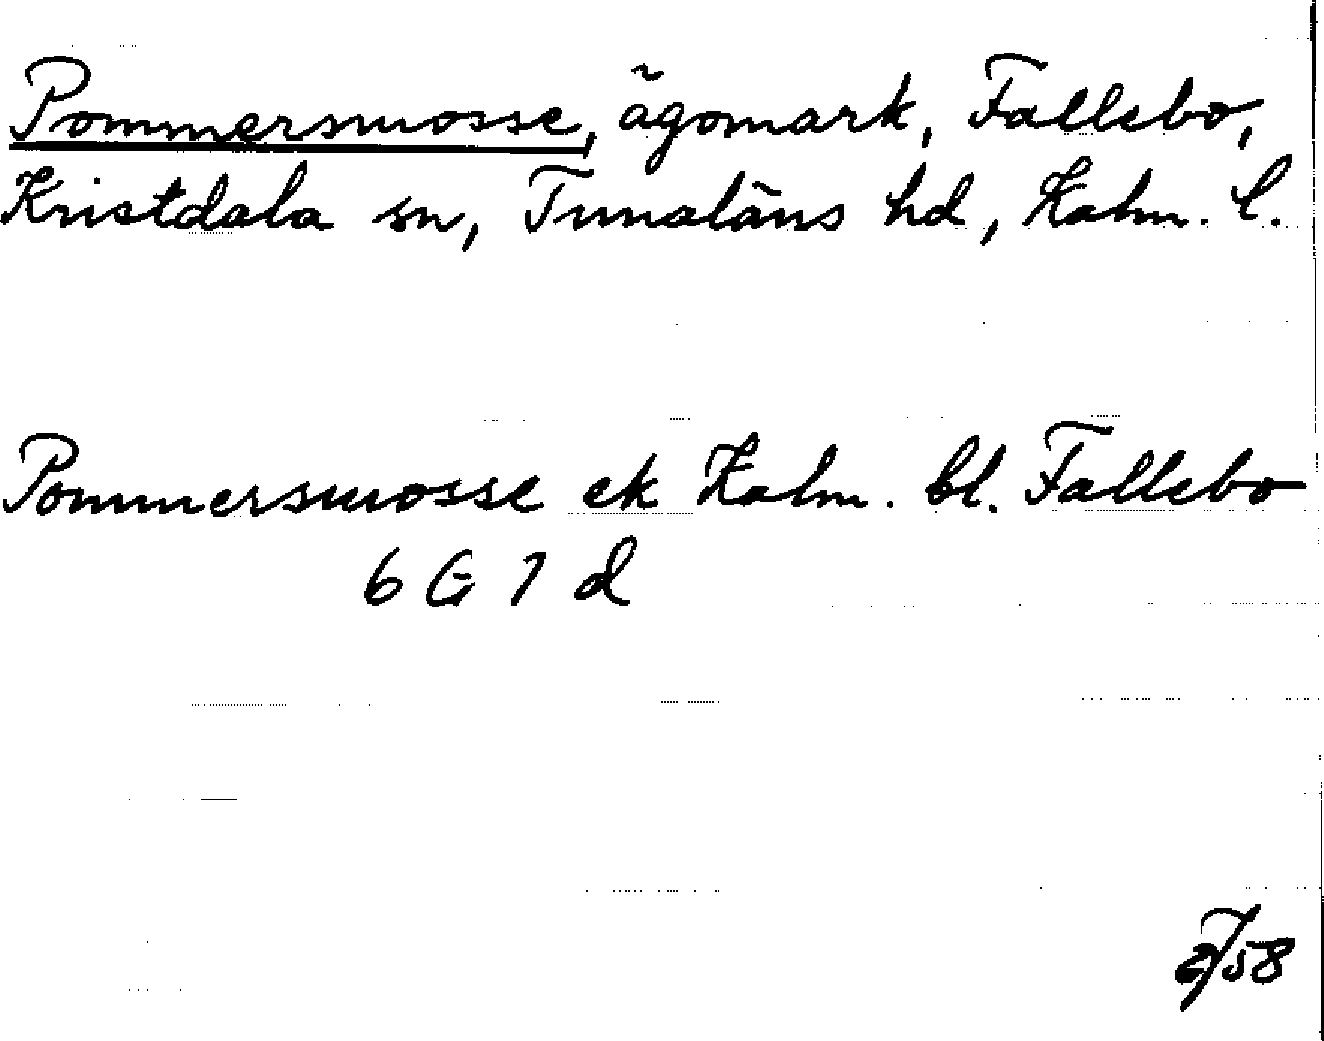 Pommersmosse, ägomark, Fallebo,
Kristdala sn, Tunaläns hd, Kalm. l.
Pommersmosse ek Kalm. bl. Fallebo
6 G 7 d